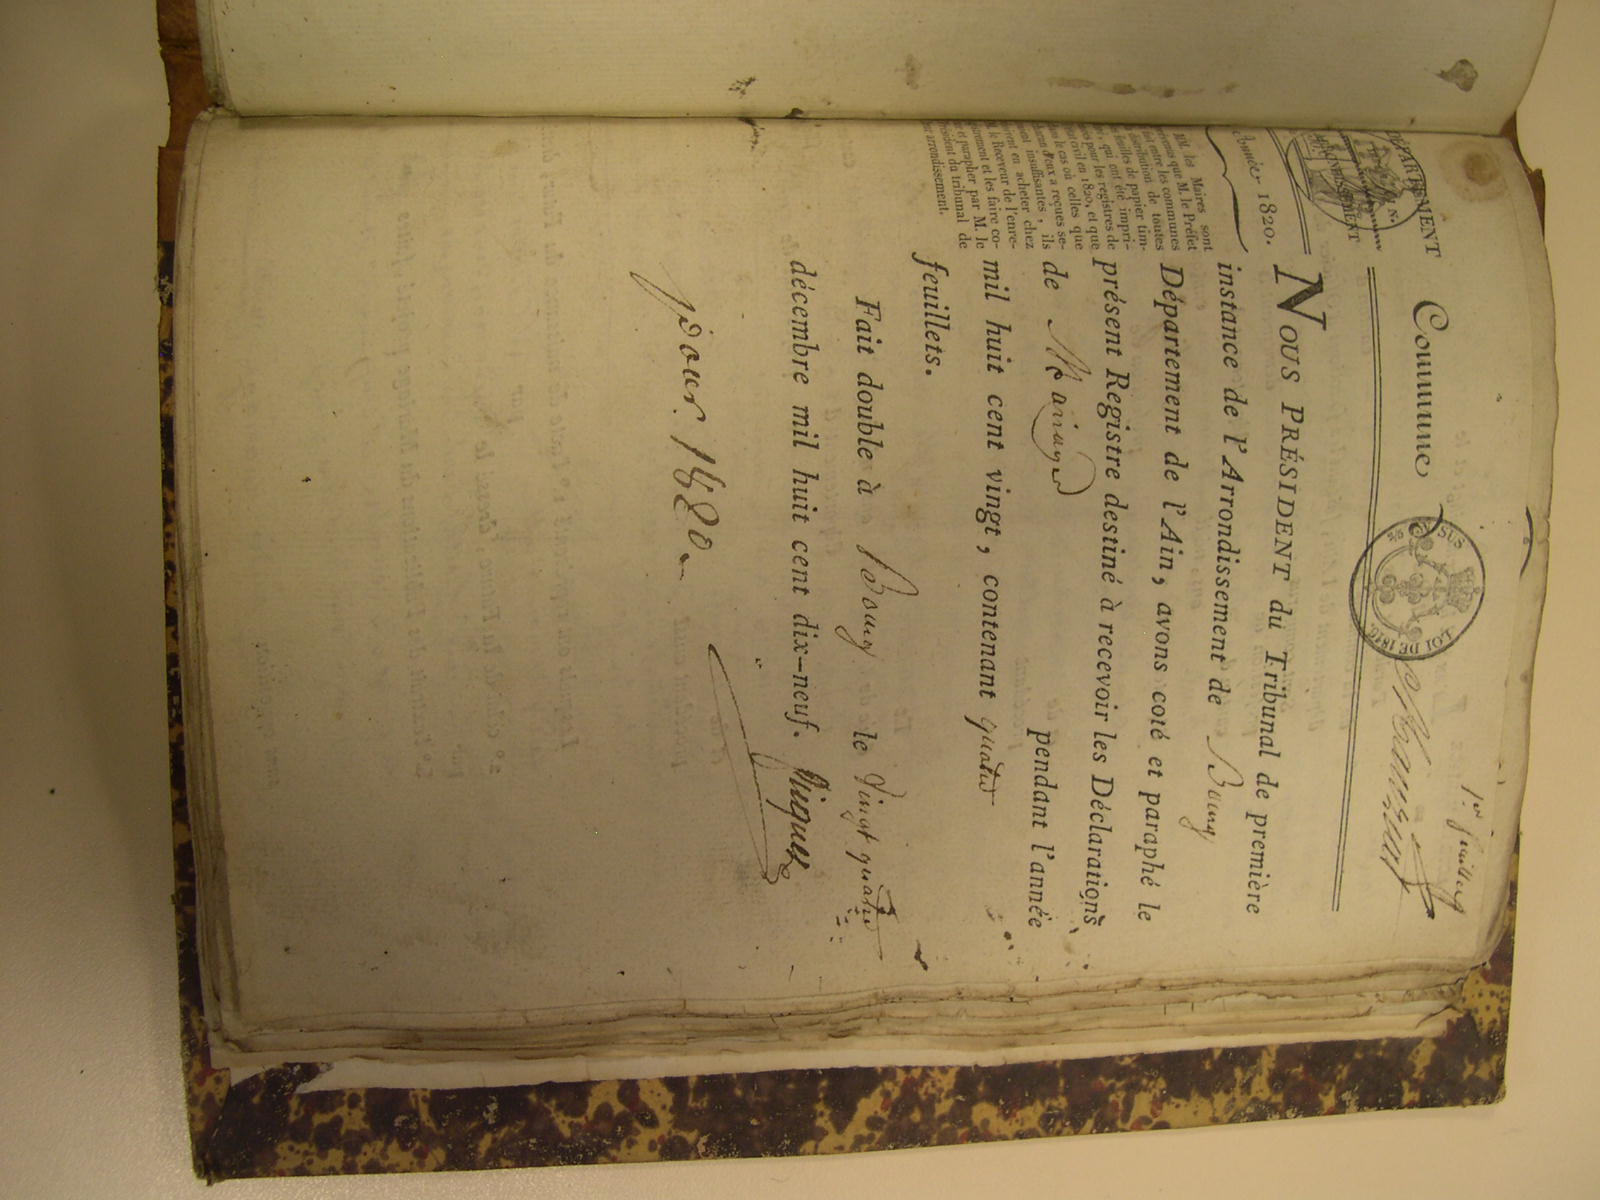 1er feuillet
DÉPARTEMENT
Commune
SUS
LOI DE 1816.
ARRONDISSEMENT
Année 1820.
NOUS PRÉSIDENT du Tribunal de première
instance de l'Arrondissement de Bourg
Département de l'Ain, avons coté et paraphé le
présent Registre destiné à recevoir les Déclarations
de Mariage pendant l'année
mil huit cent vingt, contenant quatre
feuillets.
Fait double à Bourg le Vingt quatre
décembre mil huit cent dix-neuf.
pour 1820
les Maires sont
que M. le Préfet
entre les communes
distribution de toutes
feuilles de papier tim-
qui ont été impri-
pour les registres de
civil en 1820, et que
le cas où celles que
d'eux a reçues se-
insuffisantes, ils
en acheter chez
M. le Receveur de l'enre-
et les faire co-
et parapher par M. le
du tribunal de
arrondissement.